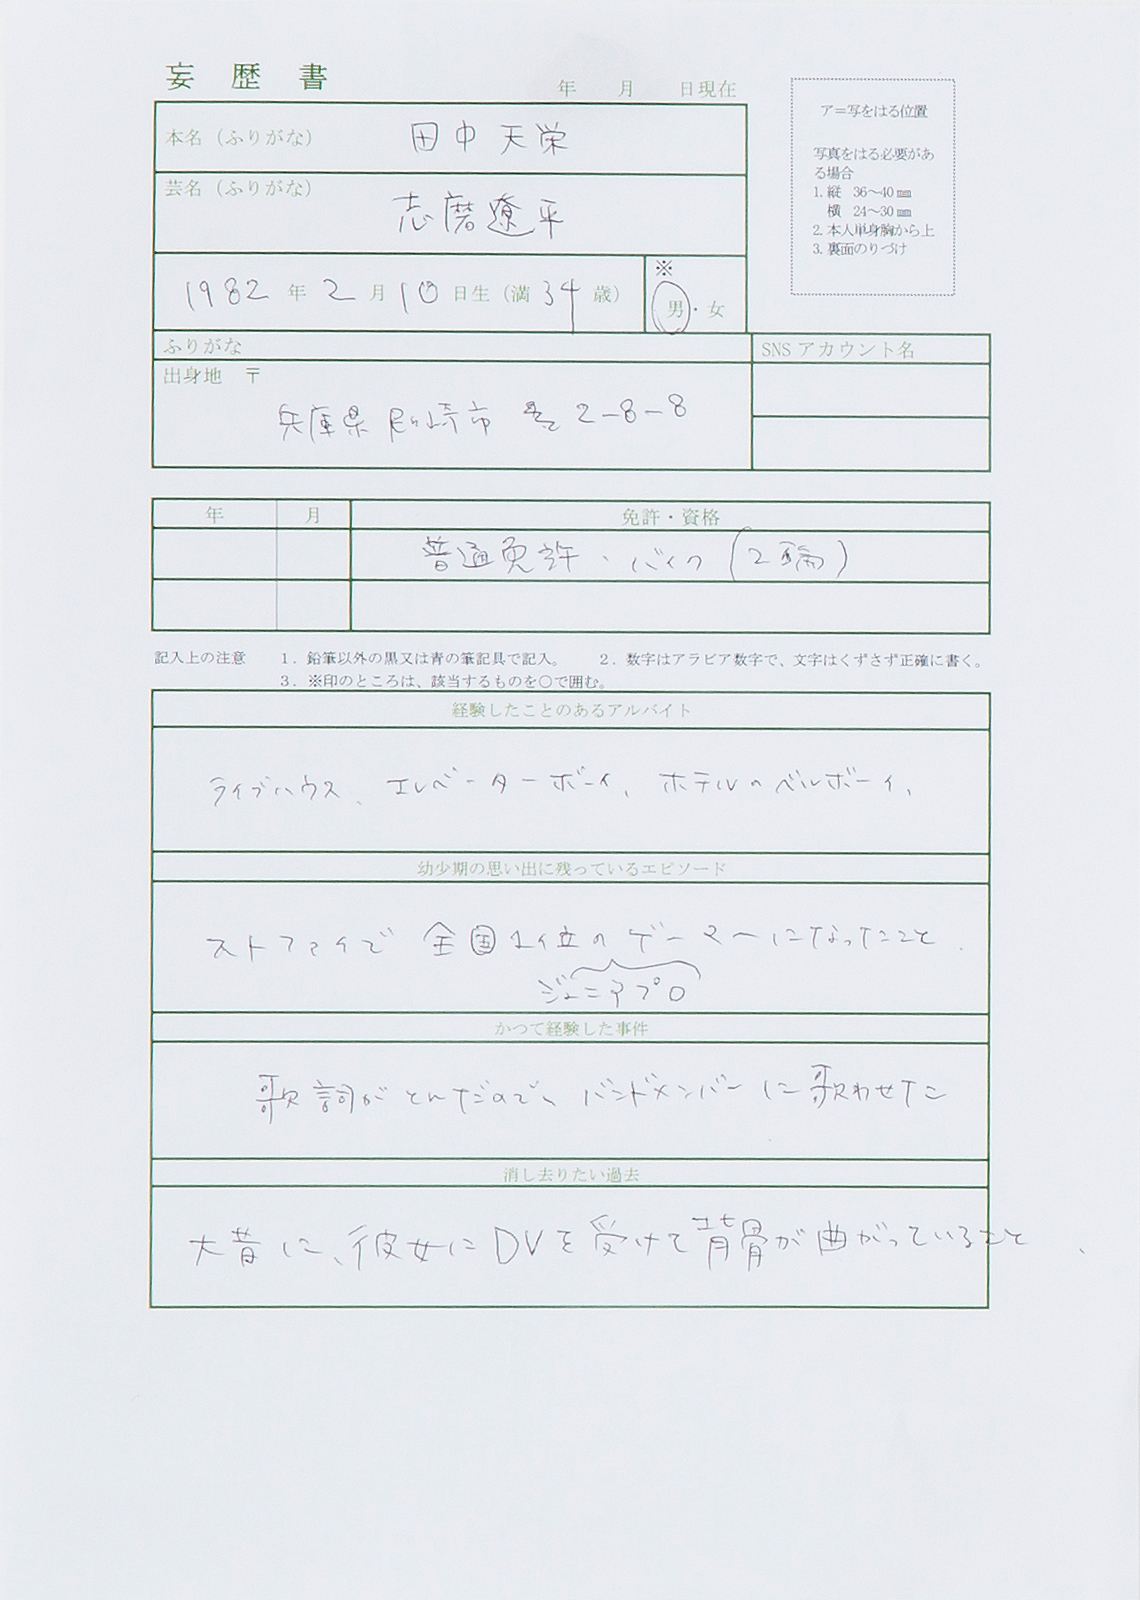 妄歴書
年　月　日現在
ア＝写をはる位置
写真をはる必要があ
る場合
1. 縦 36〜40㎜
横 24〜30㎜
2. 本人単身胸から上
3. 裏面のりづけ
本名（ふりがな） 田中天栄
芸名（ふりがな） 志磨遼平
1982年2月10日生（満34歳）
※
男・女
ふりがな
SNSアカウント名
出身地 〒
兵庫県尼崎市 2-8-8
年 月 免許・資格
普通免許・バイク（2輪）
記入上の注意 1．鉛筆以外の黒又は青の筆記具で記入。 2．数字はアラビア数字で、文字はくずさず正確に書く。
3．※印のところは、該当するものを○で囲む。
経験したことのあるアルバイト
ライブハウス、エレベーターボーイ、ホテルのベルボーイ、
幼少期の思い出に残っているエピソード
ストファイで全国1位のゲーマーになったこと．
ジュニアプロ
かつて経験した事件
歌詞がとんだので、バンドメンバーに歌わせた
消し去りたい過去
大昔に、彼女にDVを受けて背骨が曲がっていること、